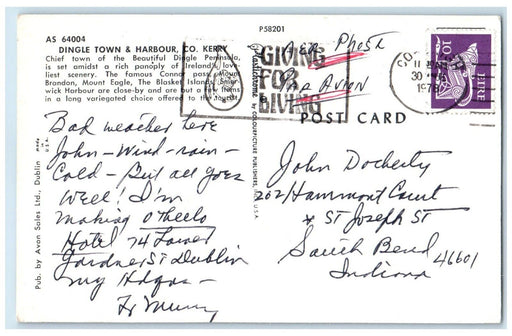 AS 64004
P58201
DINGLE TOWN & HARBOUR, CO. KERRY
Chief town of the Beautiful Dingle Peninsula,
is set amidst a rich panoply of Ireland's love-
liest scenery. The famous Connor pass, Mount
Brandon, Mount Eagle, The Blasket Islands, Smer-
wick Harbour are close-by and are but a few items
in a long variegated choice offered to the tourist
GIVING
FOR
LIVING
AER PHOST
PAR AVION
30
1978
EIRE
10
POST CARD
Plastichrome by COLOURPICTURE PUBLISHERS, INC. U.S.A.
Pub. by Avon Sales Ltd., Dublin
MADE U.S.A.
Bad weather here
John - Wind - rain -
Cold - But all goes
Well! I'm
making Othello
Hotel 74 Lower
Gardner St Dublin
my Hdqrs -
Fr Murray
John Docherty
202 Hammont Court
+ ST Joseph ST
South Bend
Indiana 46601